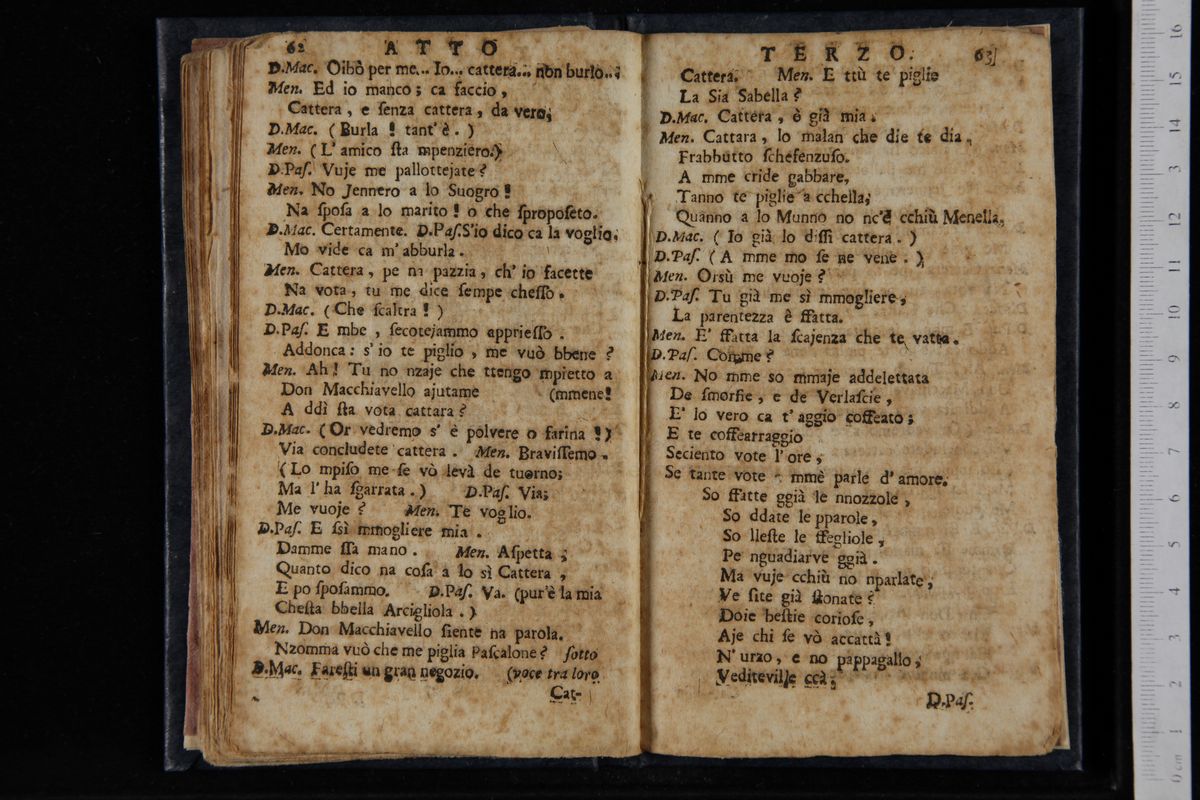 62 ATTO
D.Mac. Oibò per me... Io... cattera... non burlo...;
Men. Ed io manco; ca faccio,
Cattera, e ſenza cattera, da vero;
D.Mac. (Burla! tant' è.)
Men. (L' amico ſta mpenziero.)
D.Paſ. Vuje me pallottejate?
Men. No Jennero a lo Suogro!
Na ſpoſa a lo marito! o che ſpropoſeto.
D.Mac. Certamente. D.Paſ. S'io dico ca la voglio,
Mo vide ca m' abburla.
Men. Cattera, pe na pazzia, ch' io facette
Na vota, tu me dice ſempe cheſſo.
D.Mac. (Che ſcaltra!)
D.Paſ. E mbe, ſecotejammo apprieſſo.
Addonca: s' io te piglio, me vuò bbene?
Men. Ah! Tu no nzaje che ttengo mpietto a
Don Macchiavello ajutame (mmene!
A ddì ſta vota cattara?
D.Mac. (Or vedremo s' è polvere o farina!)
Via concludete cattera. Men. Braviſſemo.
(Lo mpiſo me ſe vò levà de tuorno;
Ma l' ha ſgarrata.) D.Paſ. Via;
Me vuoje? Men. Te voglio.
D.Paſ. E ſsì mmogliere mia.
Damme ſſa mano. Men. Aſpetta;
Quanto dico na coſa a lo sì Cattera,
E po ſpoſammo. D.Paſ. Va. (pur'è la mia
Cheſta bbella Arcigliola.)
Men. Don Macchiavello ſiente na parola.
Nzomma vuò che me piglia Paſcalone? ſotto
D.Mac. Fareſti un gran negozio. (voce tra loro
Cat-
TERZO. 63
Cattera. Men. E ttù te piglie
La Sia Sabella?
D.Mac. Cattera, è già mia.
Men. Cattara, lo malan che die te dia,
Frabbutto ſchefenzuſo.
A mme cride gabbare,
Tanno te piglie a cchella,
Quanno a lo Munno no nc'è cchiù Menella,
D.Mac. (Io già lo diſſi cattera.)
D.Paſ. (A mme mo ſe ne vene.)
Men. Orsù me vuoje?
D.Paſ. Tu già me sì mmogliere,
La parentezza è ffatta.
Men. E' ffatta la ſcajenza che te vatta.
D.Paſ. Comme?
Men. No mme so mmaje addelettata
De ſmorfie, e de Verlaſcie,
E' lo vero ca t' aggio coffeato;
E te coffearraggio
Seciento vote l' ore,
Se tante vote mmè parle d' amore.
So ffatte ggià le nnozzole,
So ddate le pparole,
So lleſte le ffegliole,
Pe nguadiarve ggià.
Ma vuje cchiù no nparlate,
Ve ſite già ſtonate?
Doie beſtie corioſe,
Aje chi ſe vò accattà!
N' urzo, e no pappagallo,
Vediteville ccà;
D.Paſ.